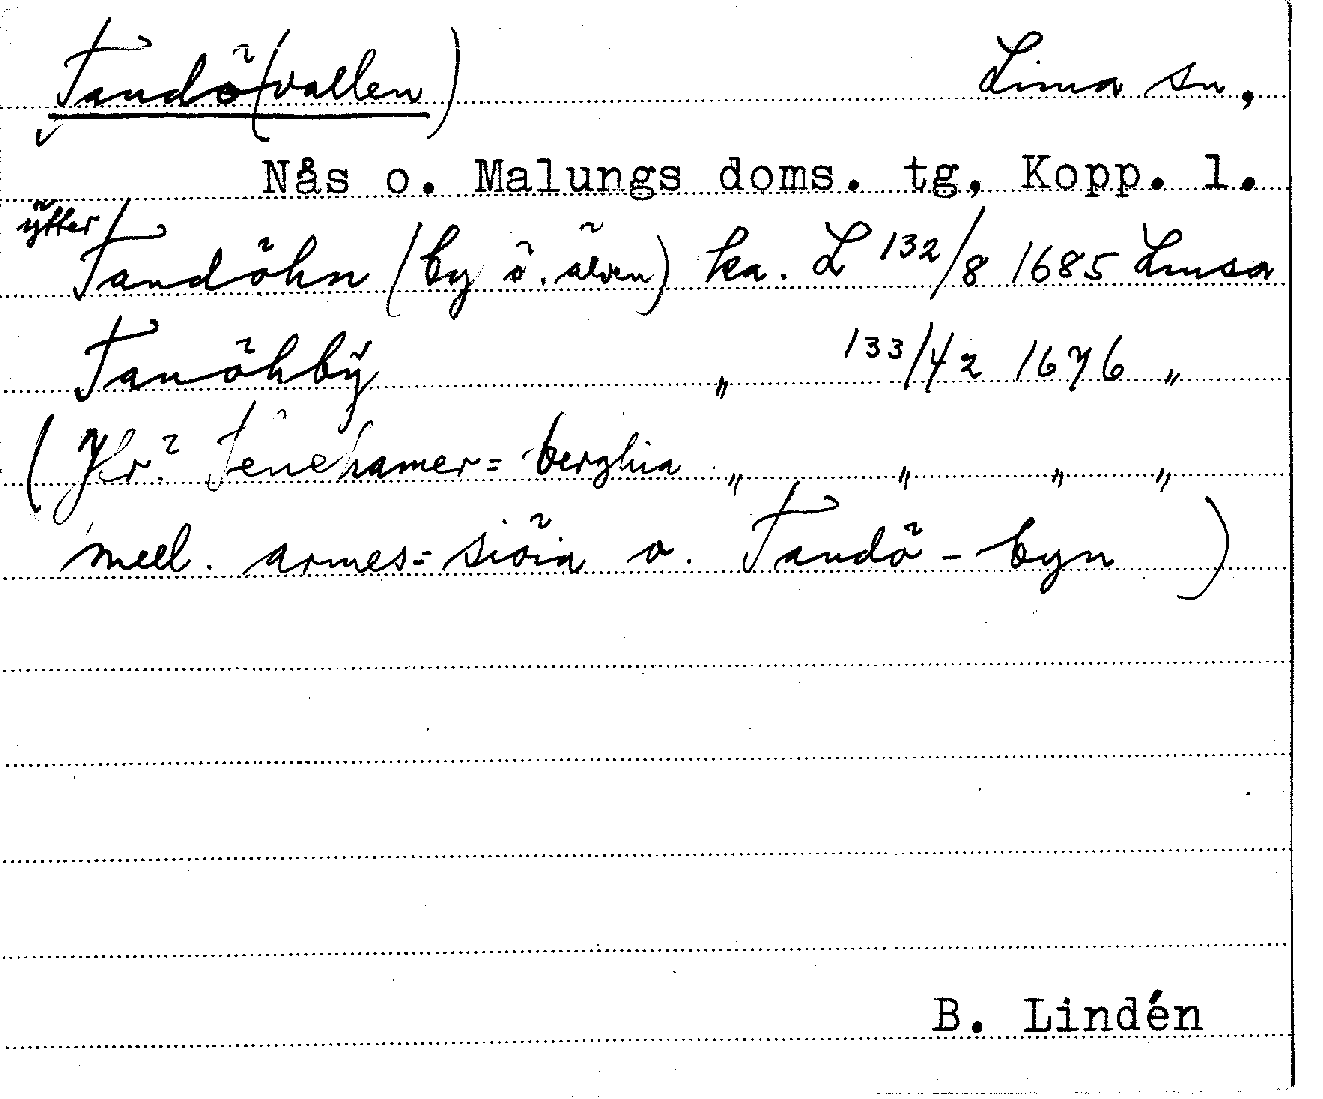 Tandö(vallen) Lima sn,
Nås o. Malungs doms. tg, Kopp. l.
ÿtter/
Tandöhn (by ö. älven) ka. L 132/8 1685 Lmsa
Tanöhbÿ " 133/42 1676 "
( Jfr? Tenehamer= berghia " " " "
mell. armes= siöia o. Tandö - byn )
B. Lindén